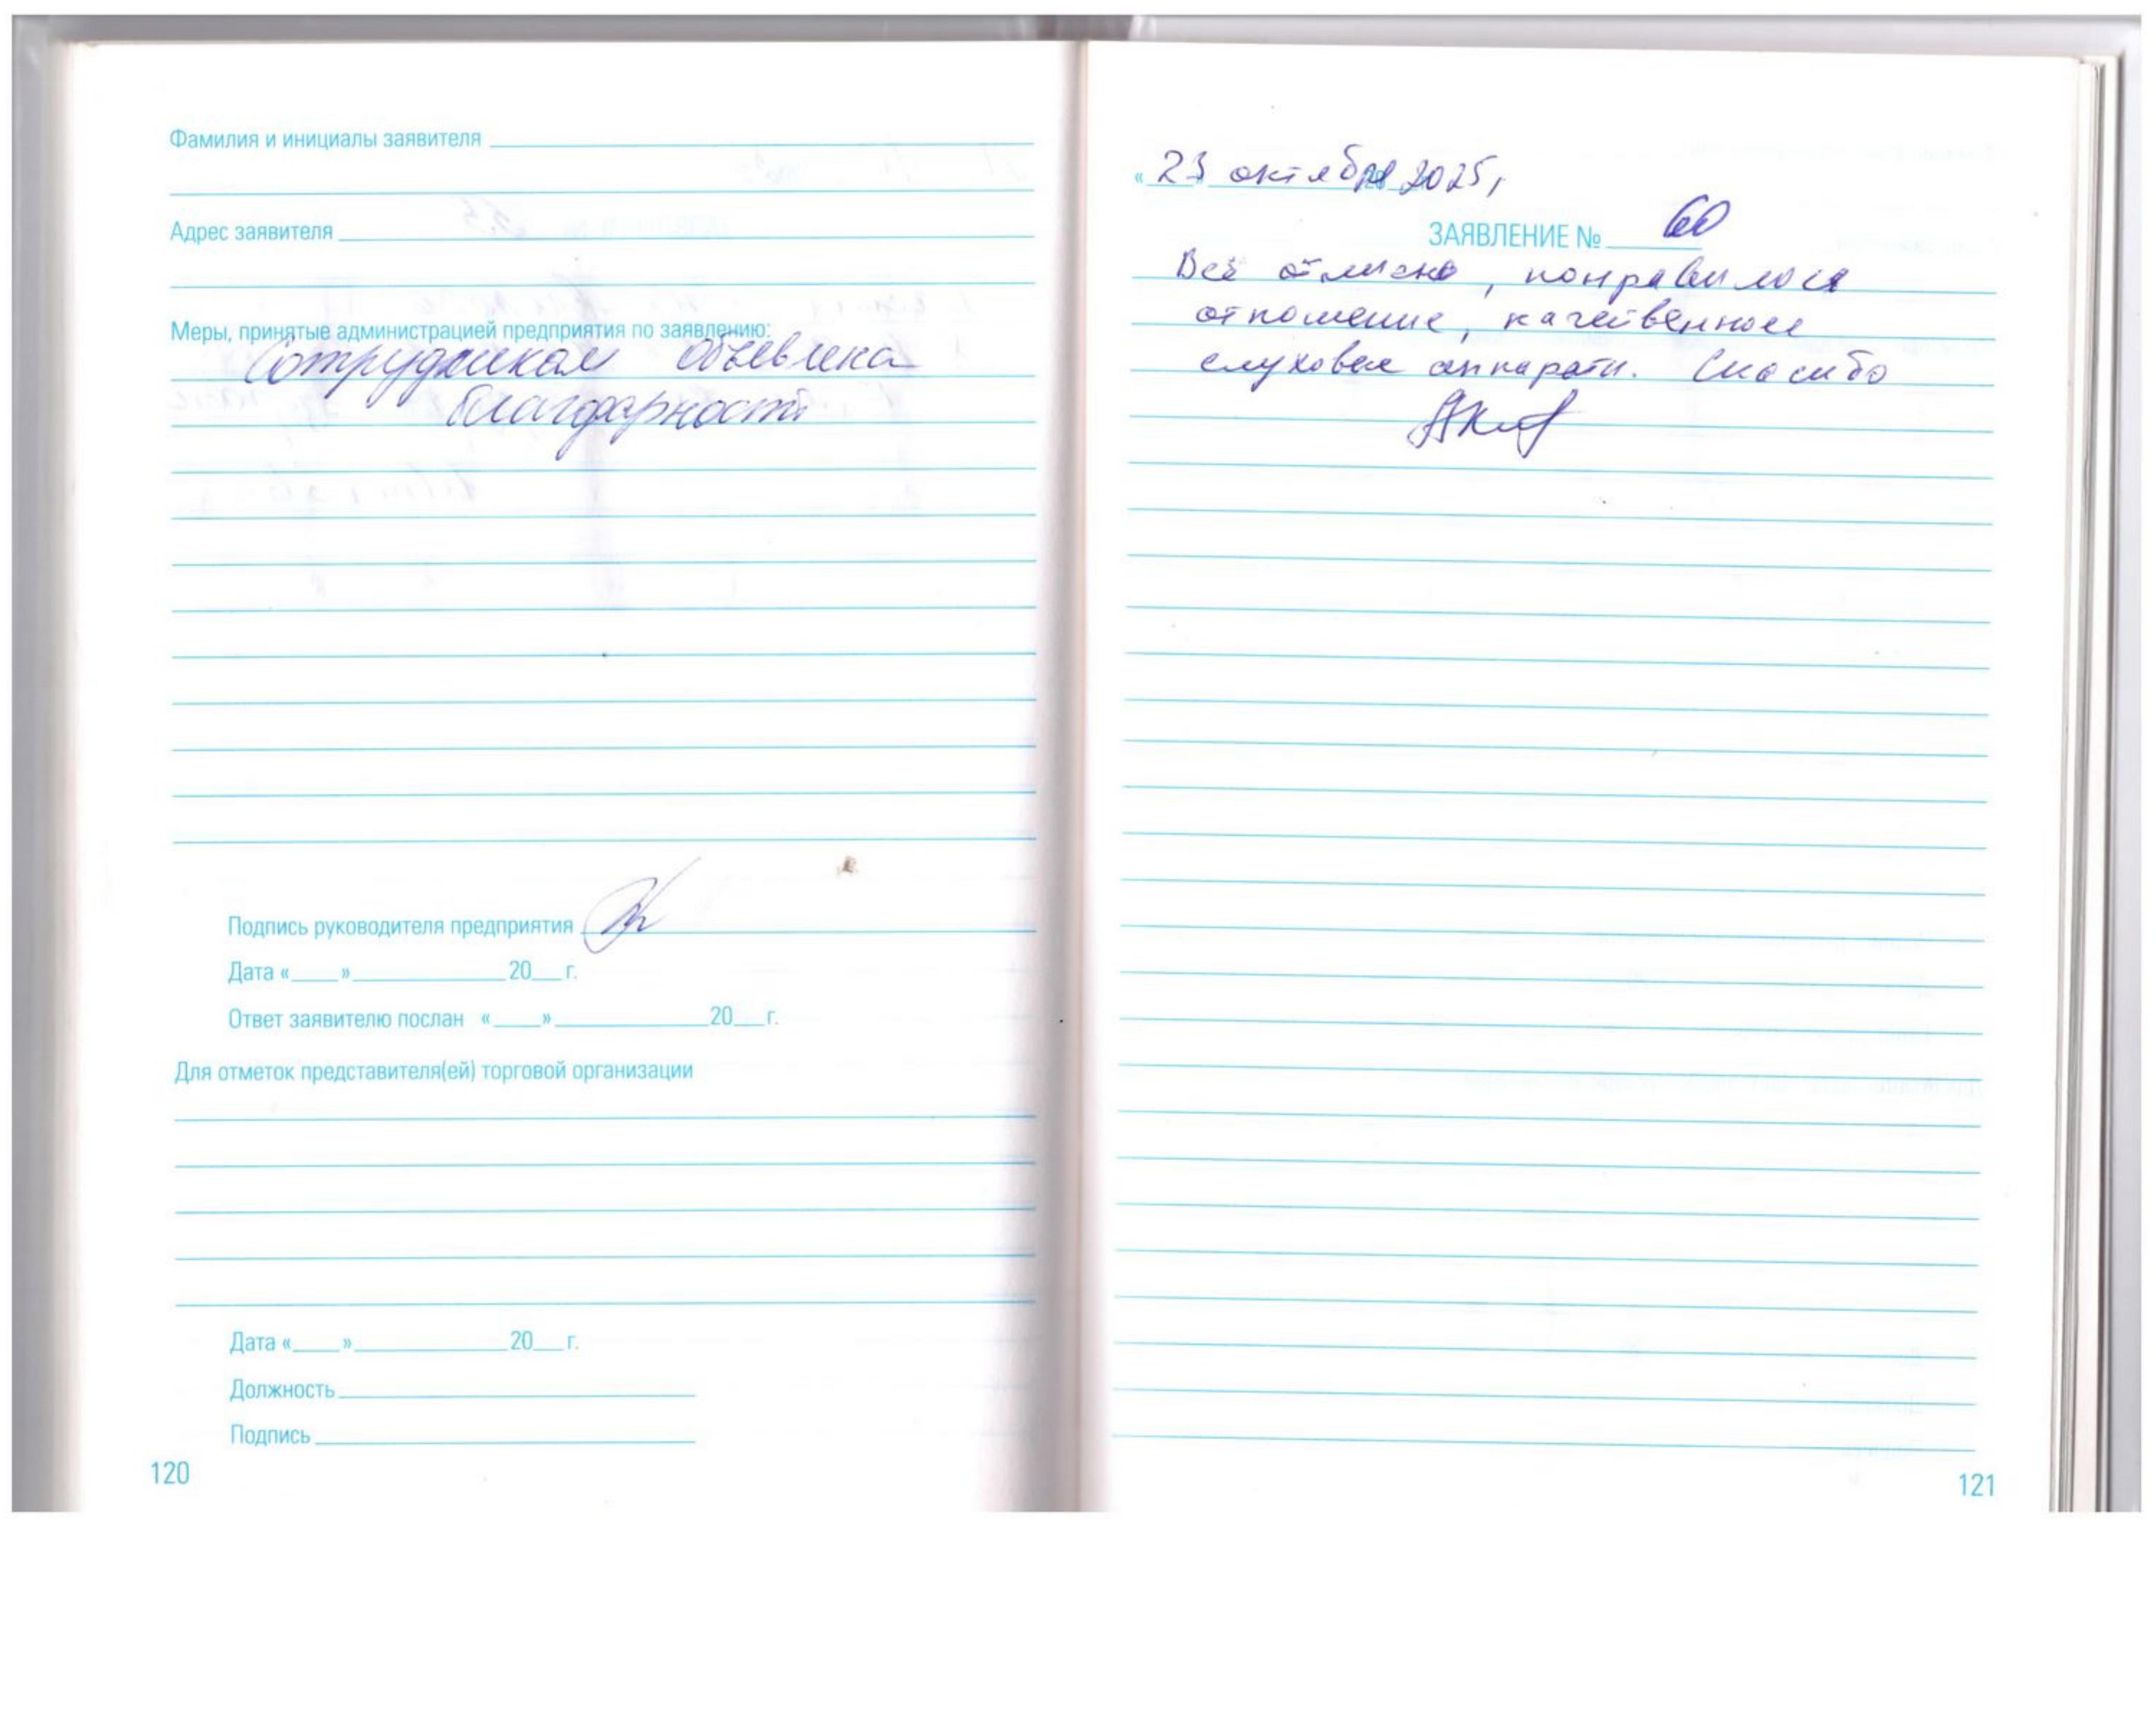 Фамилия и инициалы заявителя
Адрес заявителя
Меры, принятые администрацией предприятия по заявлению:
Сотрудникам объявлена
благодарность
Подпись руководителя предприятия
Дата «____»____________20___г.
Ответ заявителю послан «____»____________20___г.
Для отметок представителя(ей) торговой организации
Дата «____»____________20___г.
Должность
Подпись
120
«23 октября 2025г
ЗАЯВЛЕНИЕ № 60
Всё отлично, понравилось
отношение, качественные
слуховые аппараты. Спасибо
121